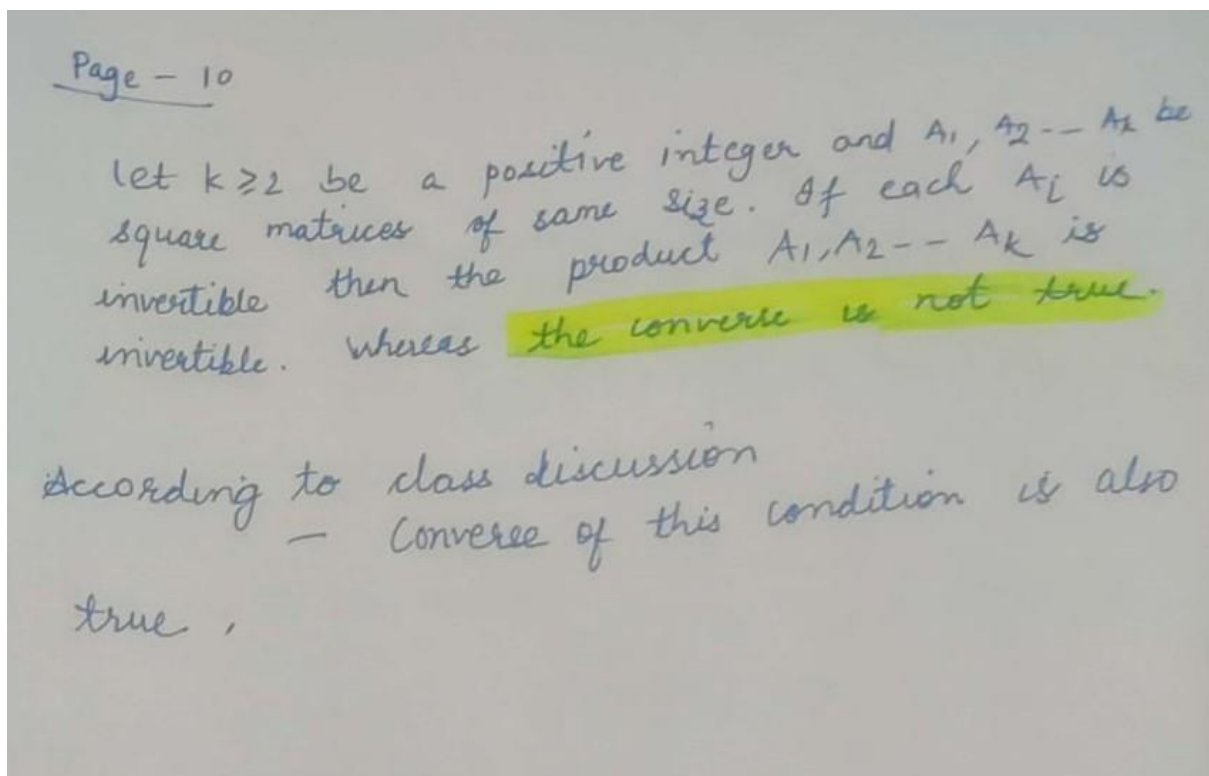 Page - 10
let k ≥ 2 be a positive integer and A1, A2 -- Ak be
square matrices of same size. If each Ai is
invertible then the product A1, A2 -- Ak is
invertible. whereas the converse is not true.
According to class discussion
- Converse of this condition is also
true,